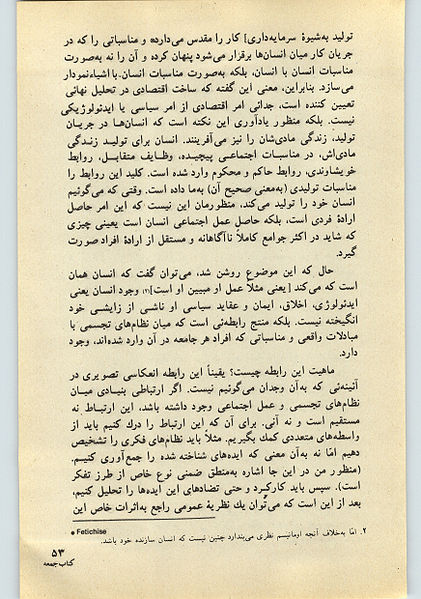 تولید به‌شیوهٔ سرمایه‌داری] کار را مقدس می‌دارد» و مناسباتی را که در
جریان کار میان انسان‌ها برقرار می‌شود پنهان کرده و آن را نه به‌صورت
مناسبات انسان با انسان، بلکه به‌صورت مناسبات انسان با اشیاء نمودار
می‌سازد. بنابراین، معنی این گفته که ساخت اقتصادی در تحلیل نهائی
تعیین کننده است، جدائی امر اقتصادی از امر سیاسی یا ایدئولوژیکی
نیست. بلکه منظور یادآوری این نکته است که انسان‌ها در جریان
تولید، زندگی مادی‌شان را نیز می‌آفرینند. انسان برای تولید زندگی
مادی‌اش، در مناسبات اجتماعی پیچیده، وظایف متقابل، روابط
خویشاوندی، روابط حاکم و محکوم وارد شده است. کلید این روابط را
مناسبات تولیدی (به‌معنی صحیح آن) به‌ما داده است. وقتی که می‌گوئیم
انسان خود را تولید می‌کند، منظورمان این نیست که این امر حاصل
ارادهٔ فردی است، بلکه حاصل عمل اجتماعی انسان است یعنی چیزی
که شاید در اکثر جوامع کاملاً ناآگاهانه و مستقل از ارادهٔ افراد صورت
گیرد.
حال که این موضوع روشن شد، می‌توان گفت که انسان همان
است که می‌کند [یعنی مثلاً عمل او مبین او است](۲)، وجود انسان یعنی
ایدئولوژی، اخلاق، ایمان و عقاید سیاسی او ناشی از زایشی خود
انگیخته نیست. بلکه منتج رابطه‌ئی است که میان نظام‌های تجسمی با
مبادلات واقعی و مناسباتی که افراد هر جامعه در آن وارد شده‌اند، وجود
دارد.
ماهیت این رابطه چیست؟ یقیناً این رابطه انعکاسی تصویری در
آئینه‌ئی که به‌آن وجدان می‌گوئیم نیست. اگر ارتباطی بنیادی میان
نظام‌های تجسمی و عمل اجتماعی وجود داشته باشد، این ارتباط نه
مستقیم است و نه آنی. برای آن که این ارتباط را درك کنیم باید از
واسطه‌های متعددی کمك بگیریم. مثلاً باید نظام‌های فکری را تشخیص
دهیم امّا نه به‌آن معنی که ایده‌های شناخته شده را جمع‌آوری کنیم.
(منظور من در این جا اشاره به‌منطق ضمنی نوع خاص از طرز تفکر
است). سپس باید کارکرد و حتی تضادهای این ایده‌ها را تحلیل کنیم،
بعد از این است که می‌توان یك نظریهٔ عمومی راجع به‌اثرات خاص این
● Fetichise
۲. امّا به‌خلاف آنچه اومانیسم نظری می‌پندارد چنین نیست که انسان سازنده خود باشد.
۵۳
کتاب جمعه